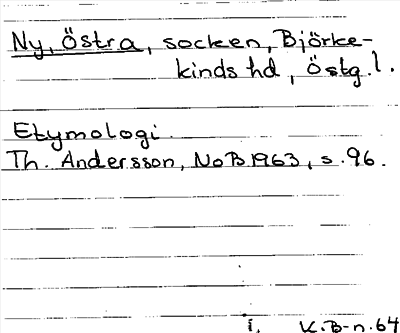 Ny, Östra, socken, Björke-
kinds hd, Östg. l.
Etymologi.
Th. Andersson, NoB 1963, s. 96.
i. K.B-n. 64